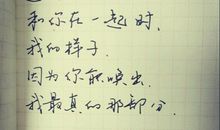 和你在一起时,
我的样子.
因为你能唤出,
我最真的那部分.